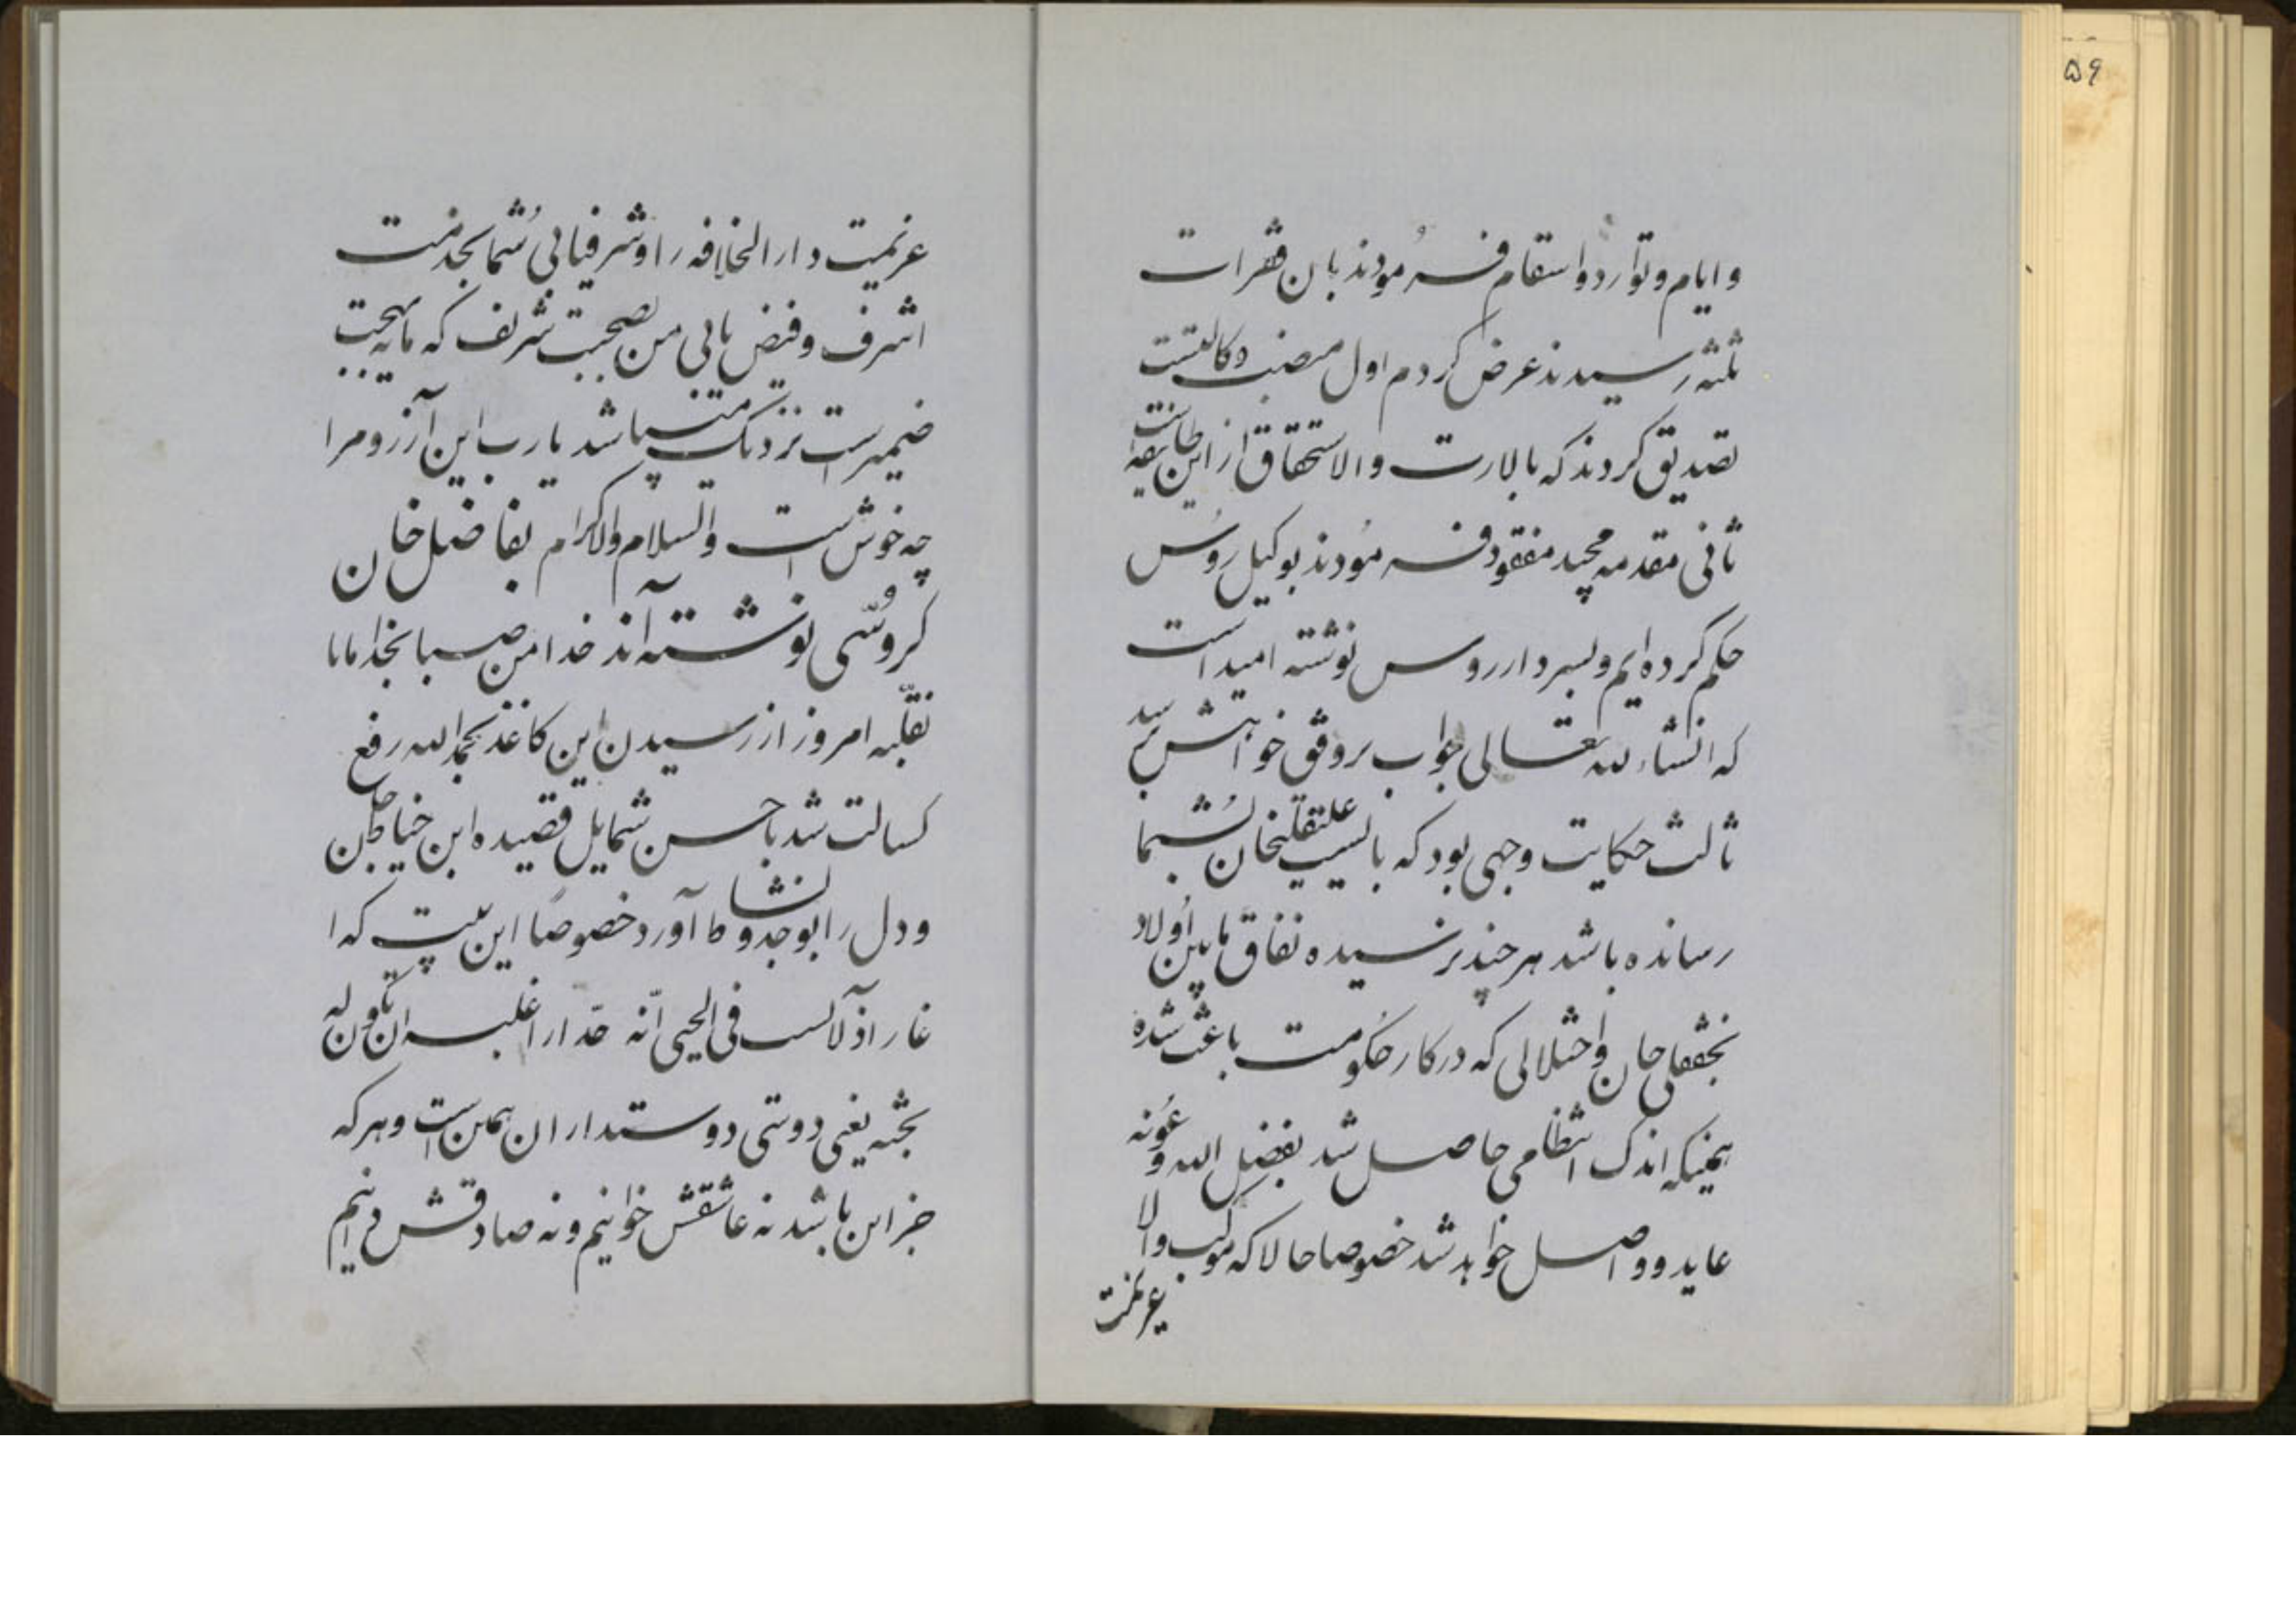 ۵۹
و ایام و توارد و اسقام فرمودند بان فقرات
ثلثه رسیدند عرض کردم اول منصب وکالتست
تصدیق کردند که بالارث والاستحقاق از این طایفه است
ثانی مقدمه مجید مفقود فرمودند بوکیل روس
حکم کرده ایم و بسردار روس نوشته امید است
که انشاء الله تعالی جواب بر وفق خواهش برسد
ثالث حکایت وجهی بود که بایست علینقلیخان بشما
رسانده باشد هر چند نرسیده نفاق مابین اولاد
نجفقلی خان و اختلالی که در کار حکومت باعث شده
همینکه اندک انتظامی حاصل شد بفضل الله و عونه
عاید و واصل خواهد شد خصوصا حالا که موکب والا
عزیمت
عزیمت دار الخلافه را و شرفیابی شما بخدمت
اشرف و فیض یابی من بصحبت شریف که مایه بهجت
ضمیرست نزدیک میباشد یا رب این آرزو مرا
چه خوش است والسلام والاکرام بفاضل خان
کروسی نوشته اند خدا من صبا نجد امانا
نقلبه امروز از رسیدن این کاغذ بحمد الله رفع
کسالت شد با حسن شمایل قصیده ابن خیاط جان
و دل را بوجد و نشاط آورد خصوصا این بیت که ا
غار اذ آنست فی الحی انه حذارا علیه ان تکون له
بحبه یعنی دوستی دوستداران همین است و هر که
جز این باشد نه عاشقش خوانیم و نه صادقش دانیم